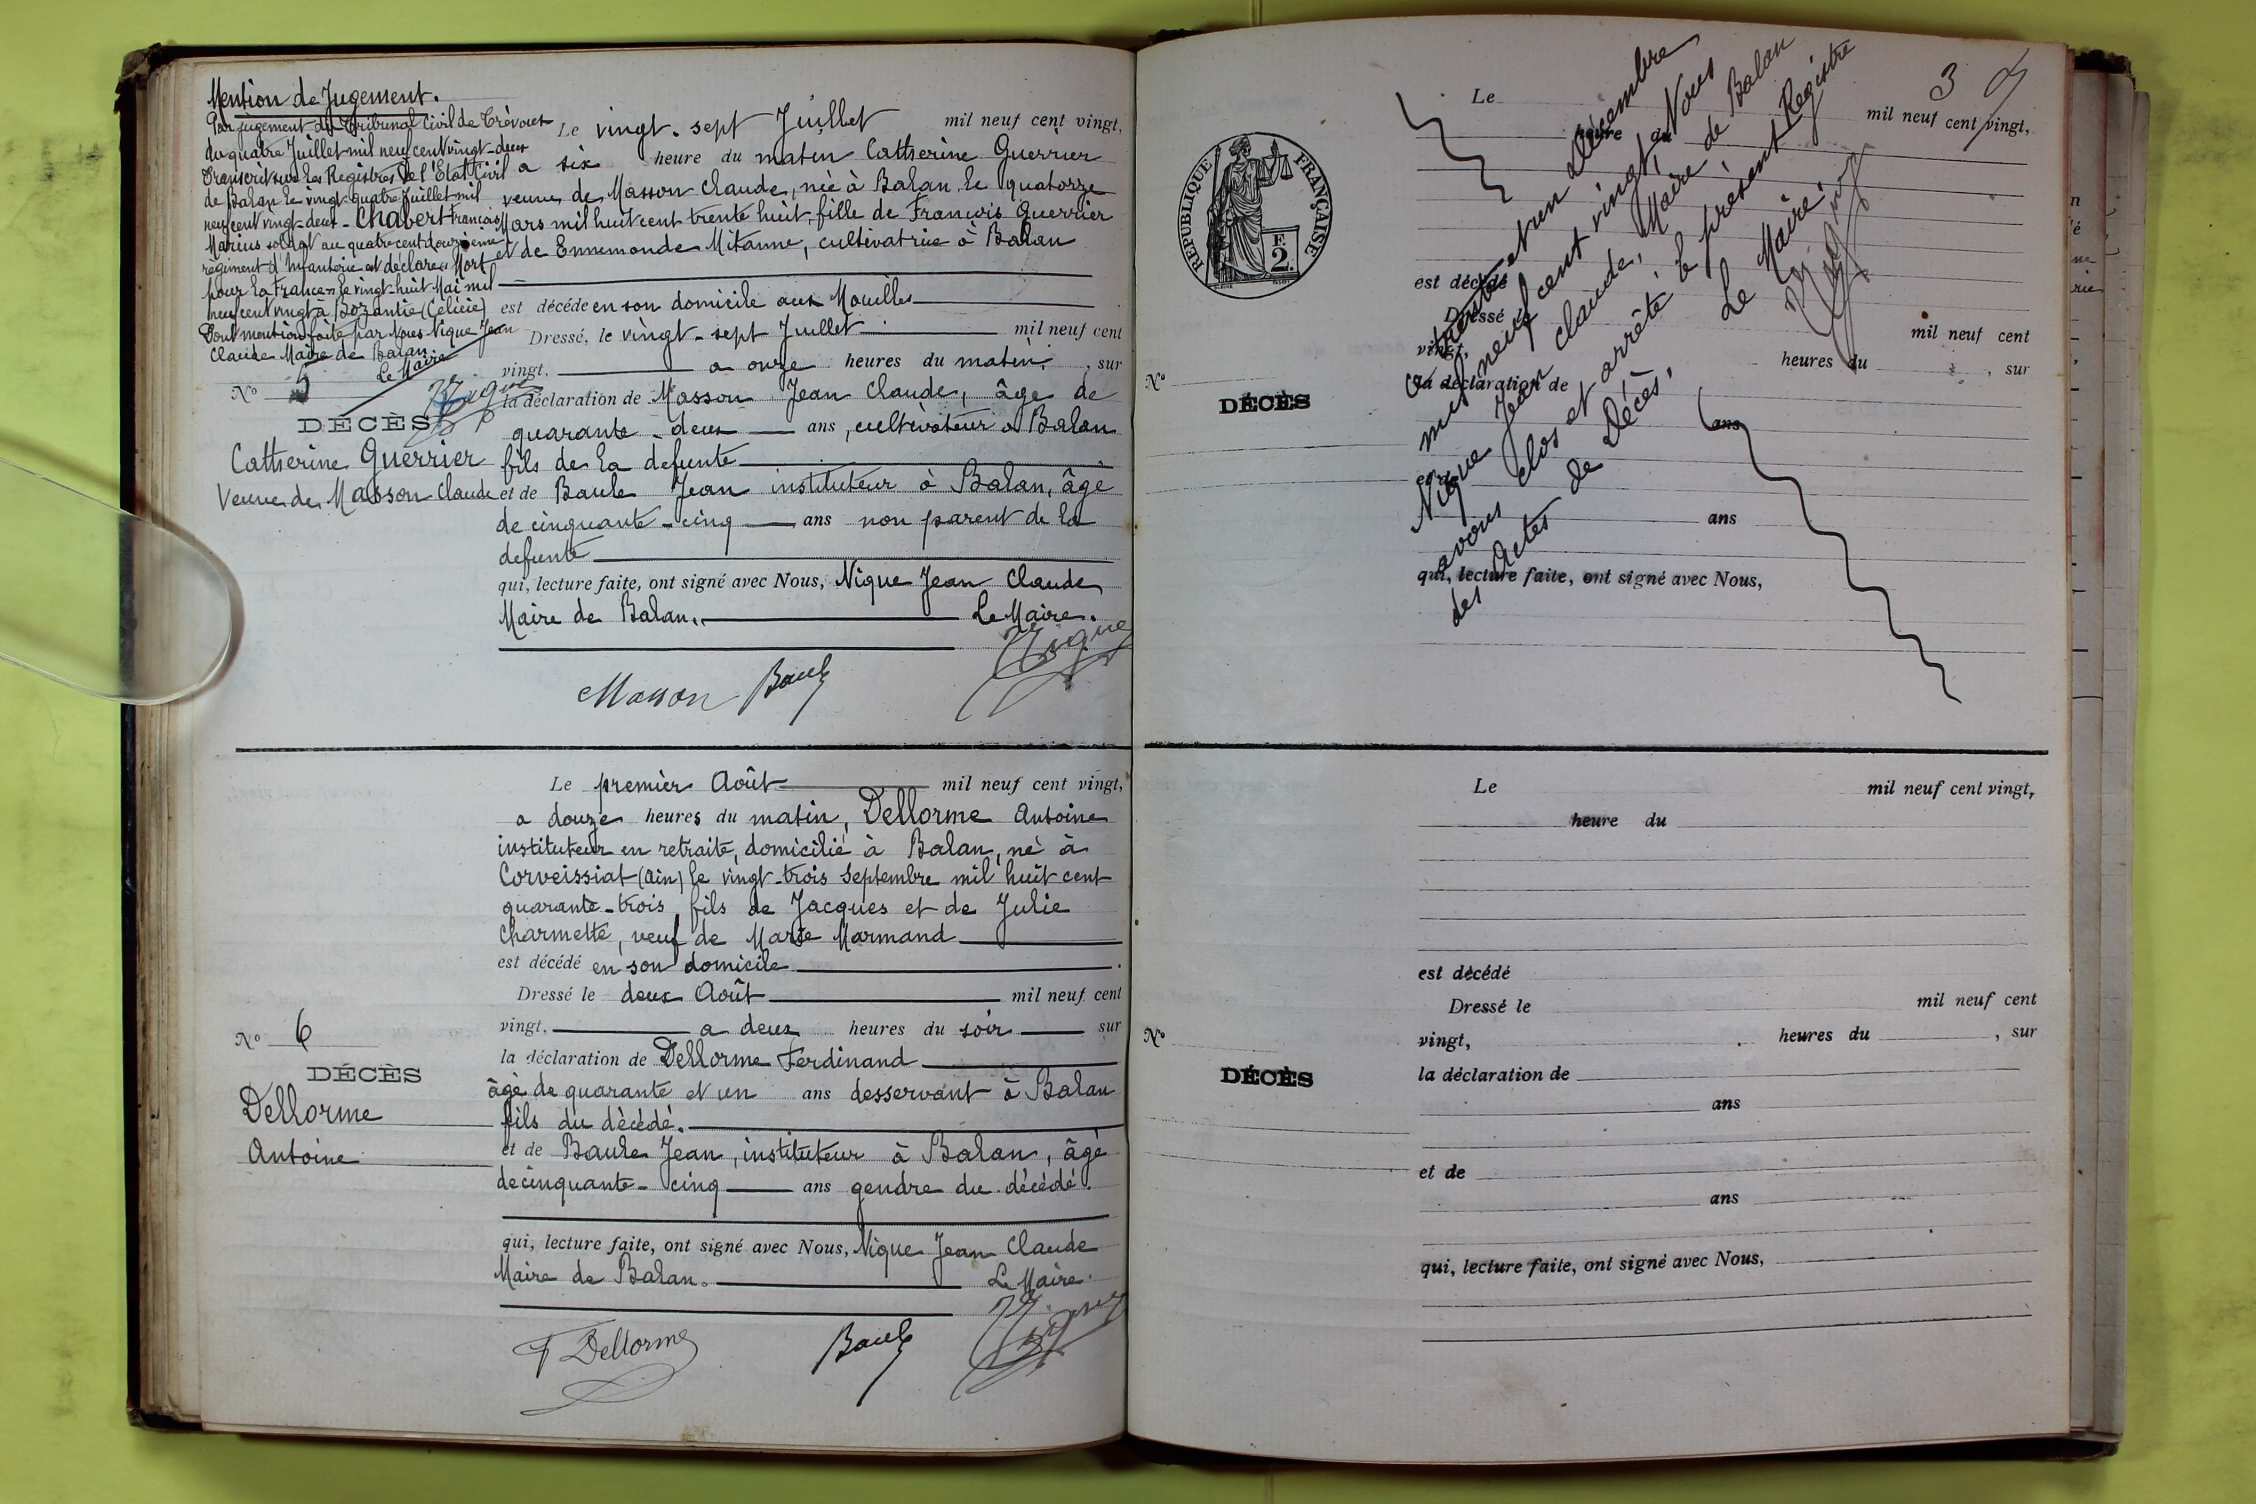 Mention de Jugement.
Par jugement du Tribunal Civil de Trévoux
du quatre Juillet mil neuf cent vingt-deux
Transcrit sur les Registres de l'Etat Civil
de Balan le vingt-quatre Juillet mil
neuf cent vingt-deux - Chabert François
Marius soldat au quatre cent douzième
régiment d'Infanterie est déclaré "Mort
pour la France" le vingt-huit Mai mil
neuf cent vingt à Bozantie (Cilicie)
Dont mention faite par Nous Nique Jean
Claude Maire de Balan.
Le Maire
Nique
No 5
DÉCÈS
Catherine Guerrier
Veuve de Masson Claude
Le vingt-sept Juillet mil neuf cent vingt,
a six heure du matin Catherine Guerrier
veuve de Masson Claude, née à Balan le quatorze
Mars mil huit cent trente huit, fille de François Guerrier
et de Ennemonde Mitanne, cultivatrice à Balan
est décédé en son domicile aux Mouilles
Dressé, le vingt-sept Juillet mil neuf cent
vingt, a onze heures du matin, sur
la déclaration de Masson Jean Claude, âgé de
quarante-deux ans, cultivateur à Balan
fils de la defunte
et de Baule Jean instituteur à Balan, âgé
de cinquante-cinq ans non parent de la
defunte
qui, lecture faite, ont signé avec Nous, Nique Jean Claude
Maire de Balan. Le Maire.
Masson Baule Nique
No 6
DÉCÈS
Dellorme
Antoine
Le premier Août mil neuf cent vingt,
a douze heures du matin, Dellorme Antoine
instituteur en retraite, domicilié à Balan, né à
Corveissiat (Ain) le vingt-trois Septembre mil huit cent
quarante-trois, fils de Jacques et de Julie
Charmette, veuf de Marie Marmand
est décédé en son domicile.
Dressé le deux Août mil neuf cent
vingt, a deux heures du soir sur
la déclaration de Dellorme Ferdinand
âgé de quarante et un ans desservant à Balan
fils du décédé.
et de Baule Jean, instituteur à Balan, âgé
de cinquante-cinq ans gendre du décédé.
qui, lecture faite, ont signé avec Nous, Nique Jean Claude
Maire de Balan. Le Maire.
F Dellorme Baule Nique
3
RÉPUBLIQUE FRANÇAISE
F.
2.
No
DÉCÈS
Le mil neuf cent vingt,
heure du
est décédé
Dressé le mil neuf cent
vingt, heures du , sur
la déclaration de
ans
et de
ans
qui, lecture faite, ont signé avec Nous,
Ce trente et un Décembre
mil neuf cent vingt, Nous
Nique Jean Claude, Maire de Balan
avons clos et arrêté le présent Registre
des Actes de Décès.
Le Maire
Nique
No
DÉCÈS
Le mil neuf cent vingt,
heure du
est décédé
Dressé le mil neuf cent
vingt, heures du , sur
la déclaration de
ans
et de
ans
qui, lecture faite, ont signé avec Nous,